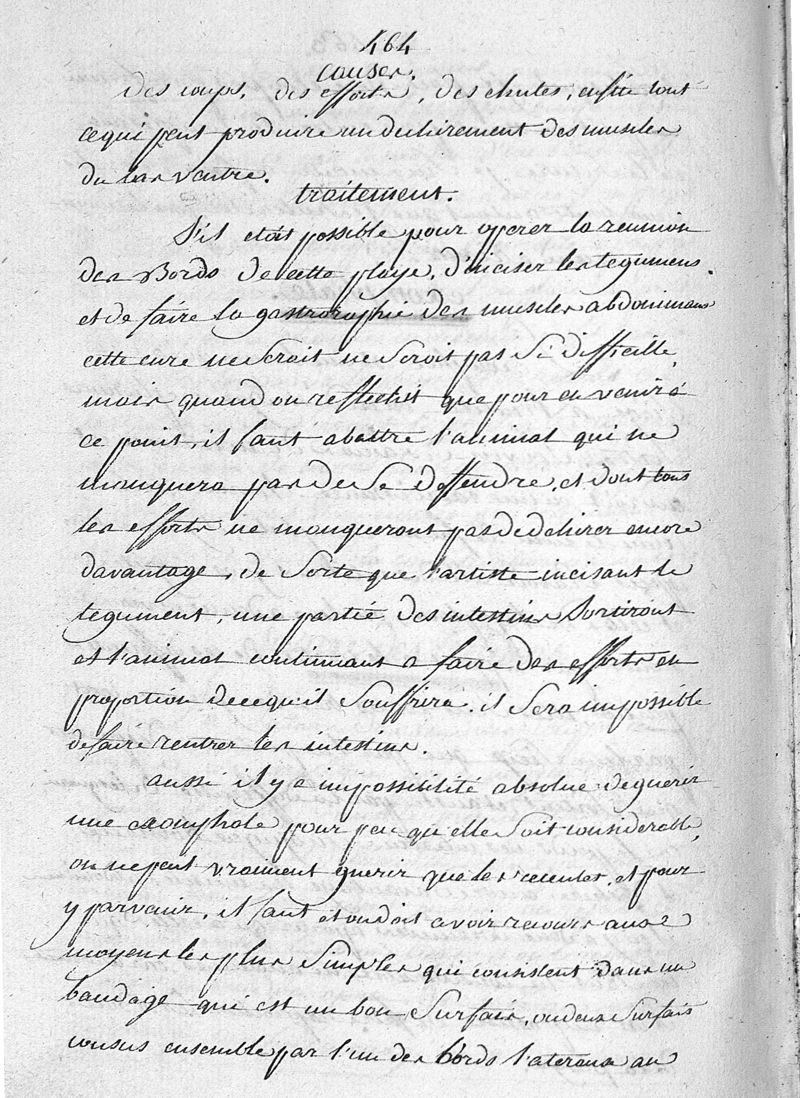 464
causes.
des coups, des efforts, des chutes, enfin tout
cequi peut produire un dechirement des muscles
du bas ventre.
traitement.
S'il etait possible pour operer la reunion
des Bords de cette playe, d'inciser les tegumens
et de faire la gastroraphie des muscles abdominaux
cette cure ne seroit ne seroit pas si difficille,
mais quand on reflechit que pour en venir a
ce point, il faut abattre l'animal qui ne
manquera pas de se deffendre, et dont tous
les efforts ne manqueront pas de dechirer encore
davantage, de sorte que l'artiste incisant le
tegument, une partie des intestins sortiront
et l'animal continuant a faire des efforts en
proportion de cequ'il souffrira, il sera impossible
de faire rentrer les intestins.
aussi il y a impossibilité absolue de guerir
une exomphale pour peu qu'elle soit considerable,
on ne peut vraiment guerir que les recentes, et pour
y parvenir, il faut et on doit avoir recours aux
moyens les plus simples qui consistent dans un
bandage qui est un bon surfaix, ou deux surfaix
cousus ensemble par l'un des bords lateraux au